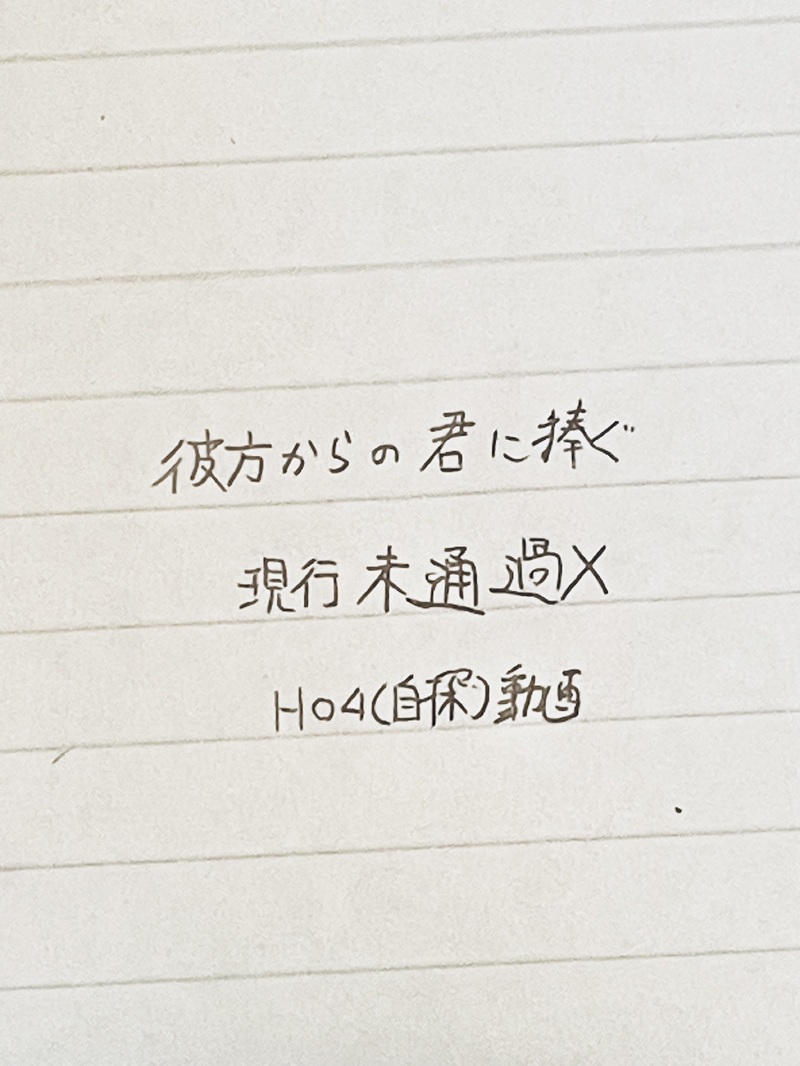 彼方からの君に捧ぐ
現行未通過X
HO4(自探)動画